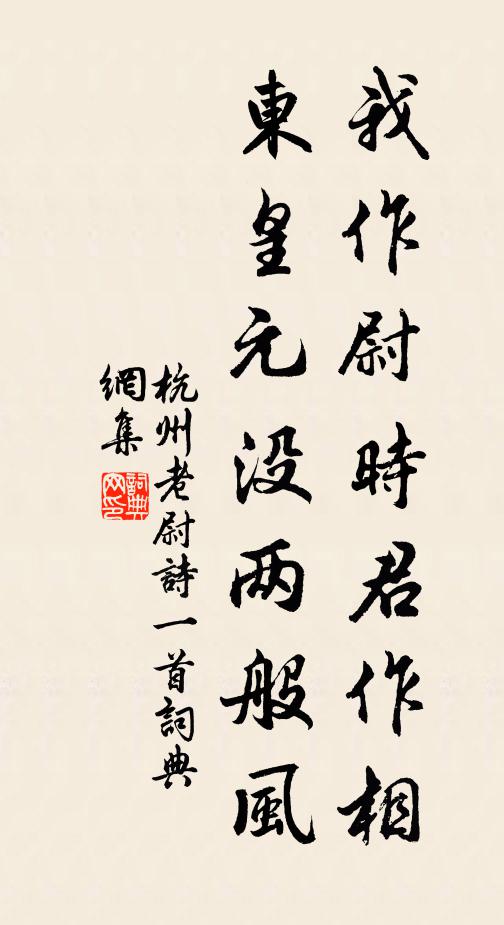 我作尉時君作相
東皇元没两般風
杭州老尉詩一首詞典
網集
詞典
网印